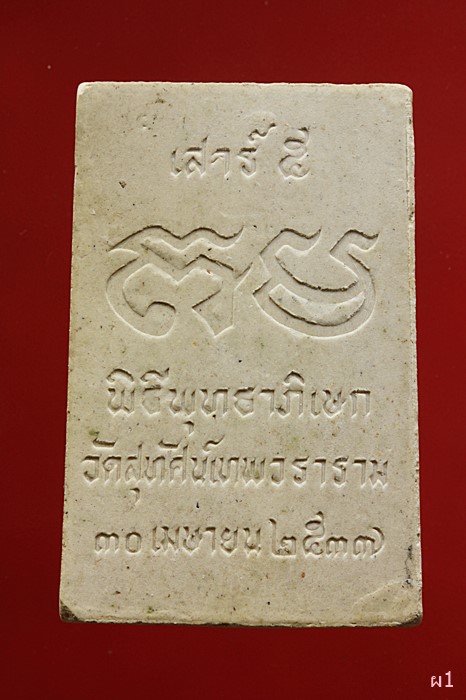 เสาร์ ๕
พิธีพุทธาภิเษก
วัดสุทัศน์เทพวราราม
๓๐ เมษายน ๒๕๓๗
ผ1